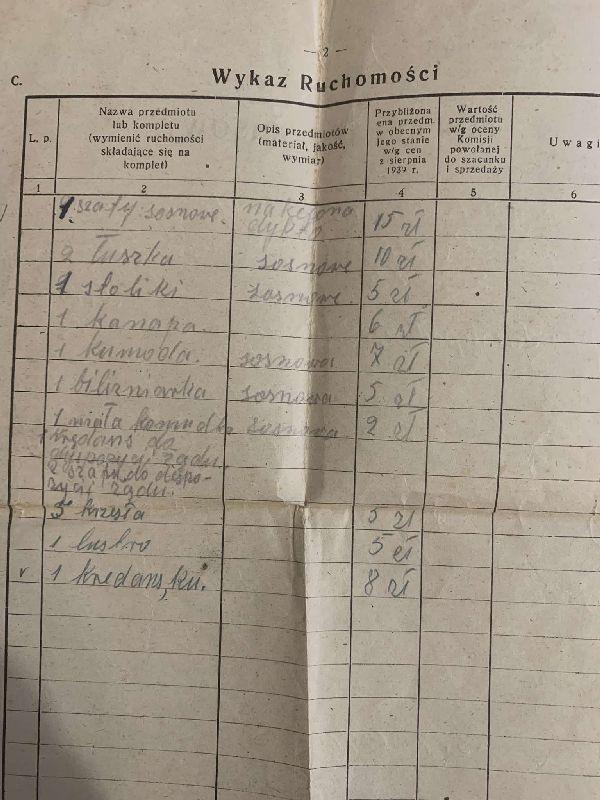 — 2 —
C. Wykaz Ruchomości
L. p.
Nazwa przedmiotu
lub kompletu
(wymienić ruchomości
składające się na
komplet)
Opis przedmiotów
(materiał, jakość,
wymiar)
Przybliżona
ena przedm.
w obecnym
jego stanie
w/g cen
z sierpnia
1939 r.
Wartość
przedmiotu
w/g oceny
Komisji
powołanej
do szacunku
i sprzedaży
Uwagi
1 2 3 4 5 6
1 szafy sosnowe. 15 zł
2 łuszka sosnowe 10 zł
1 stoliki sosnowe. 5 zł
1 kanapa. 6 zł
1 kumoda. sosnowa 7 zł
1 biliźniarka sosnowa 5 zł
1 mała komudka sosnowa 2 zł
1 kredans do
dyspozycji żądu.
2 szafy do dyspo-
zycji żądu.
5 krzesła 5 zł
1 lustro 5 zł
v 1 kredans, ku. 8 zł